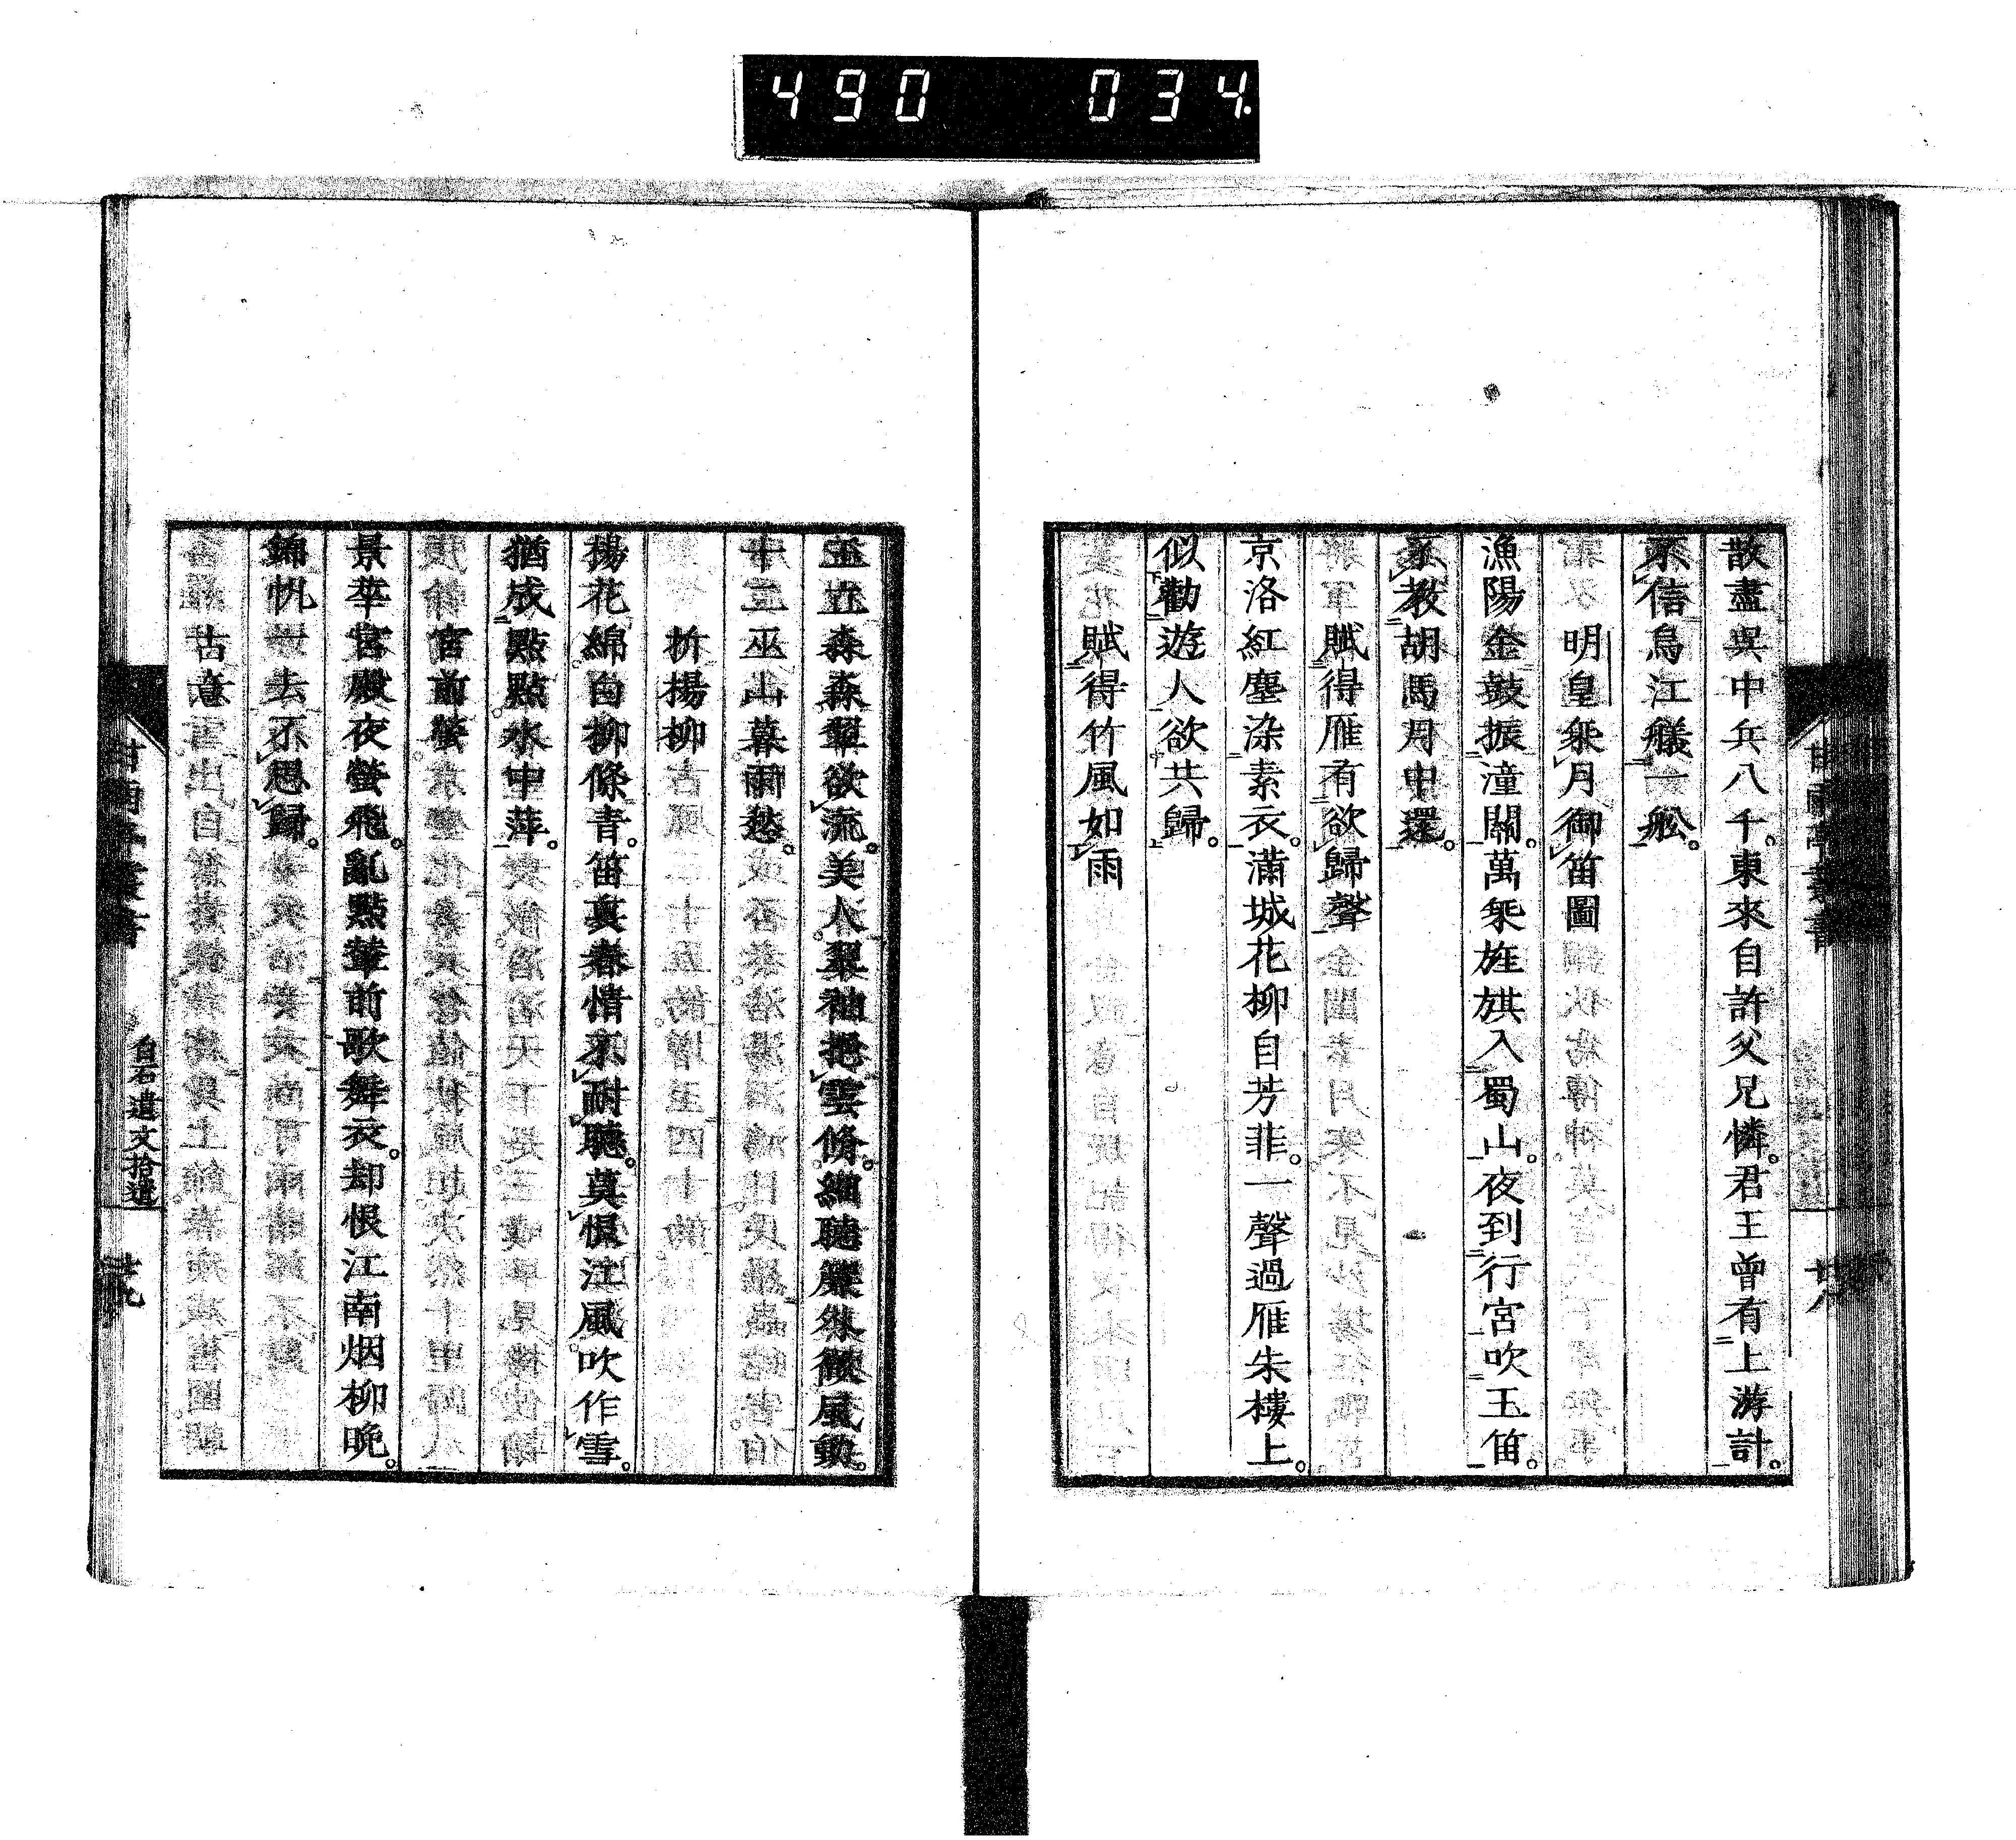 490 034.
散盡吳中兵八千。東來自許父兄憐。君王曾有上游計。
不信烏江艤一舩。
明皇乗月御笛圖
漁陽金鼓振潼關。萬乗旌旗入蜀山。夜到行宮吹玉笛。
不教胡馬月中還。
賦得雁有欲歸聲
京洛紅塵染素衣。滿城花柳自芳菲。一聲過雁朱樓上。
似勸遊人欲共歸。
賦得竹風如雨
甘雨亭叢書
廿八
玉立森森翠欲流。美人翠袖把雲脩。細聽簾外微風動。
十二巫山暮雨愁。
折揚柳
揚花綿白柳條青。笛裏春情不耐聽。莫恨江風吹作雪。
猶成點點水中萍。
宮前螢
景華宮殿夜螢飛。亂點輦前歌舞衣。却恨江南烟柳晩。
錦帆一去不思歸。
古意
甘雨亭叢書
白石遺文拾遺
廿九